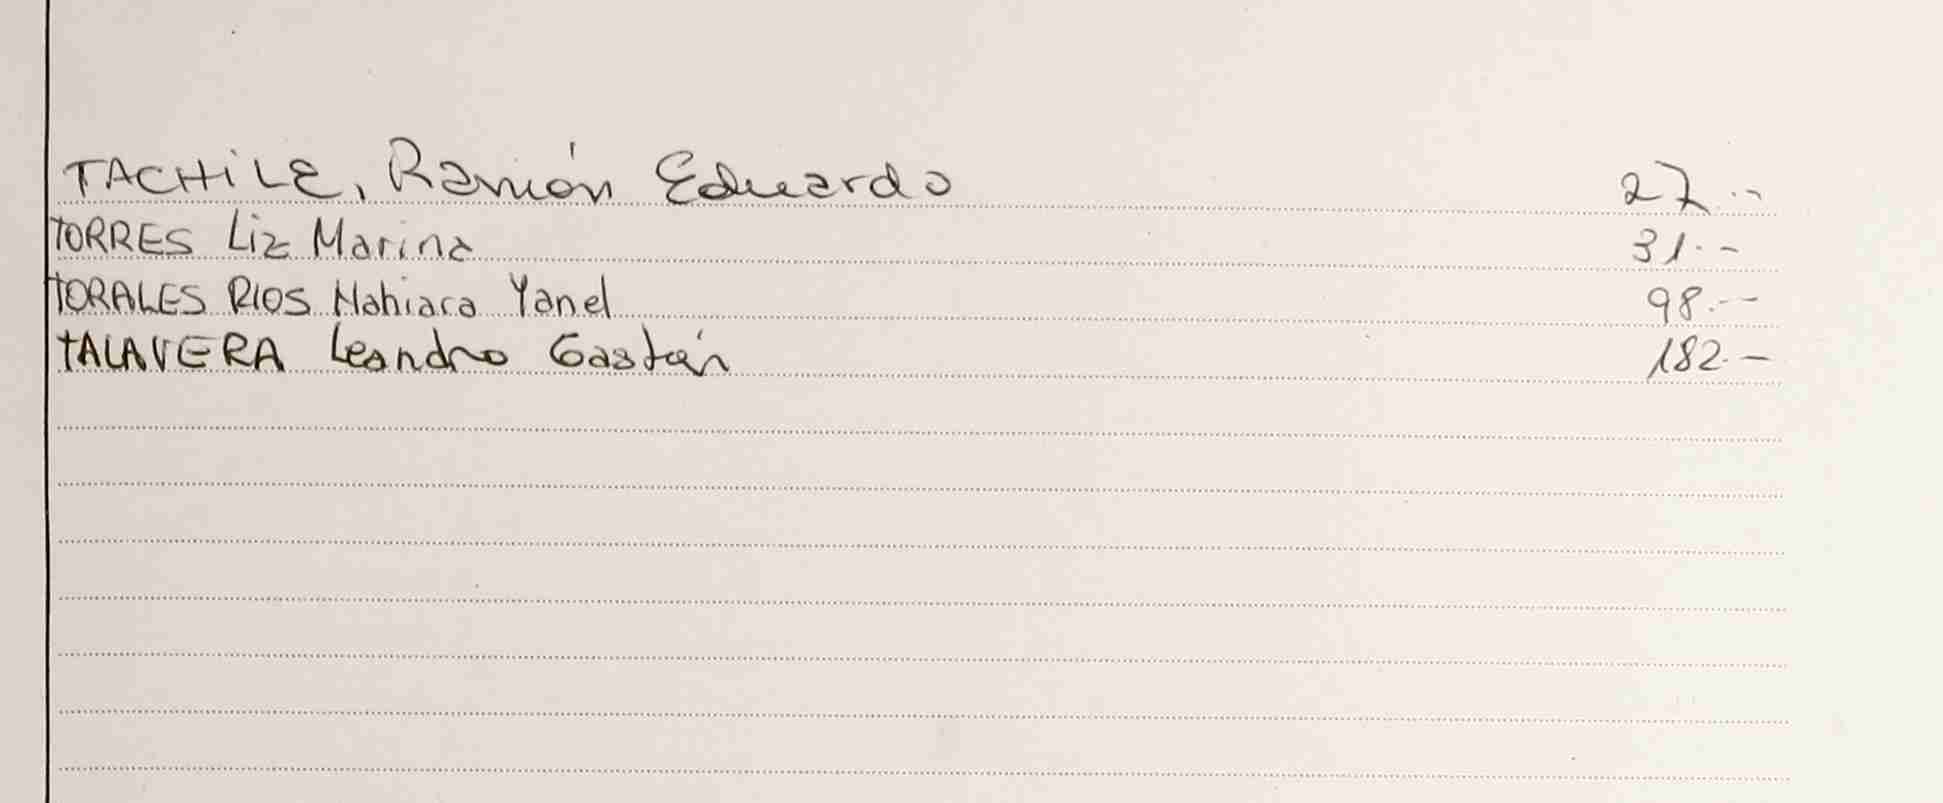 TACHiLE, Ramón Eduardo 27.--
TORRES Liz Marina 31.--
TORALES RIOS Nahiara Yanel 98.--
TALAVERA Leandro Gastón 182.-